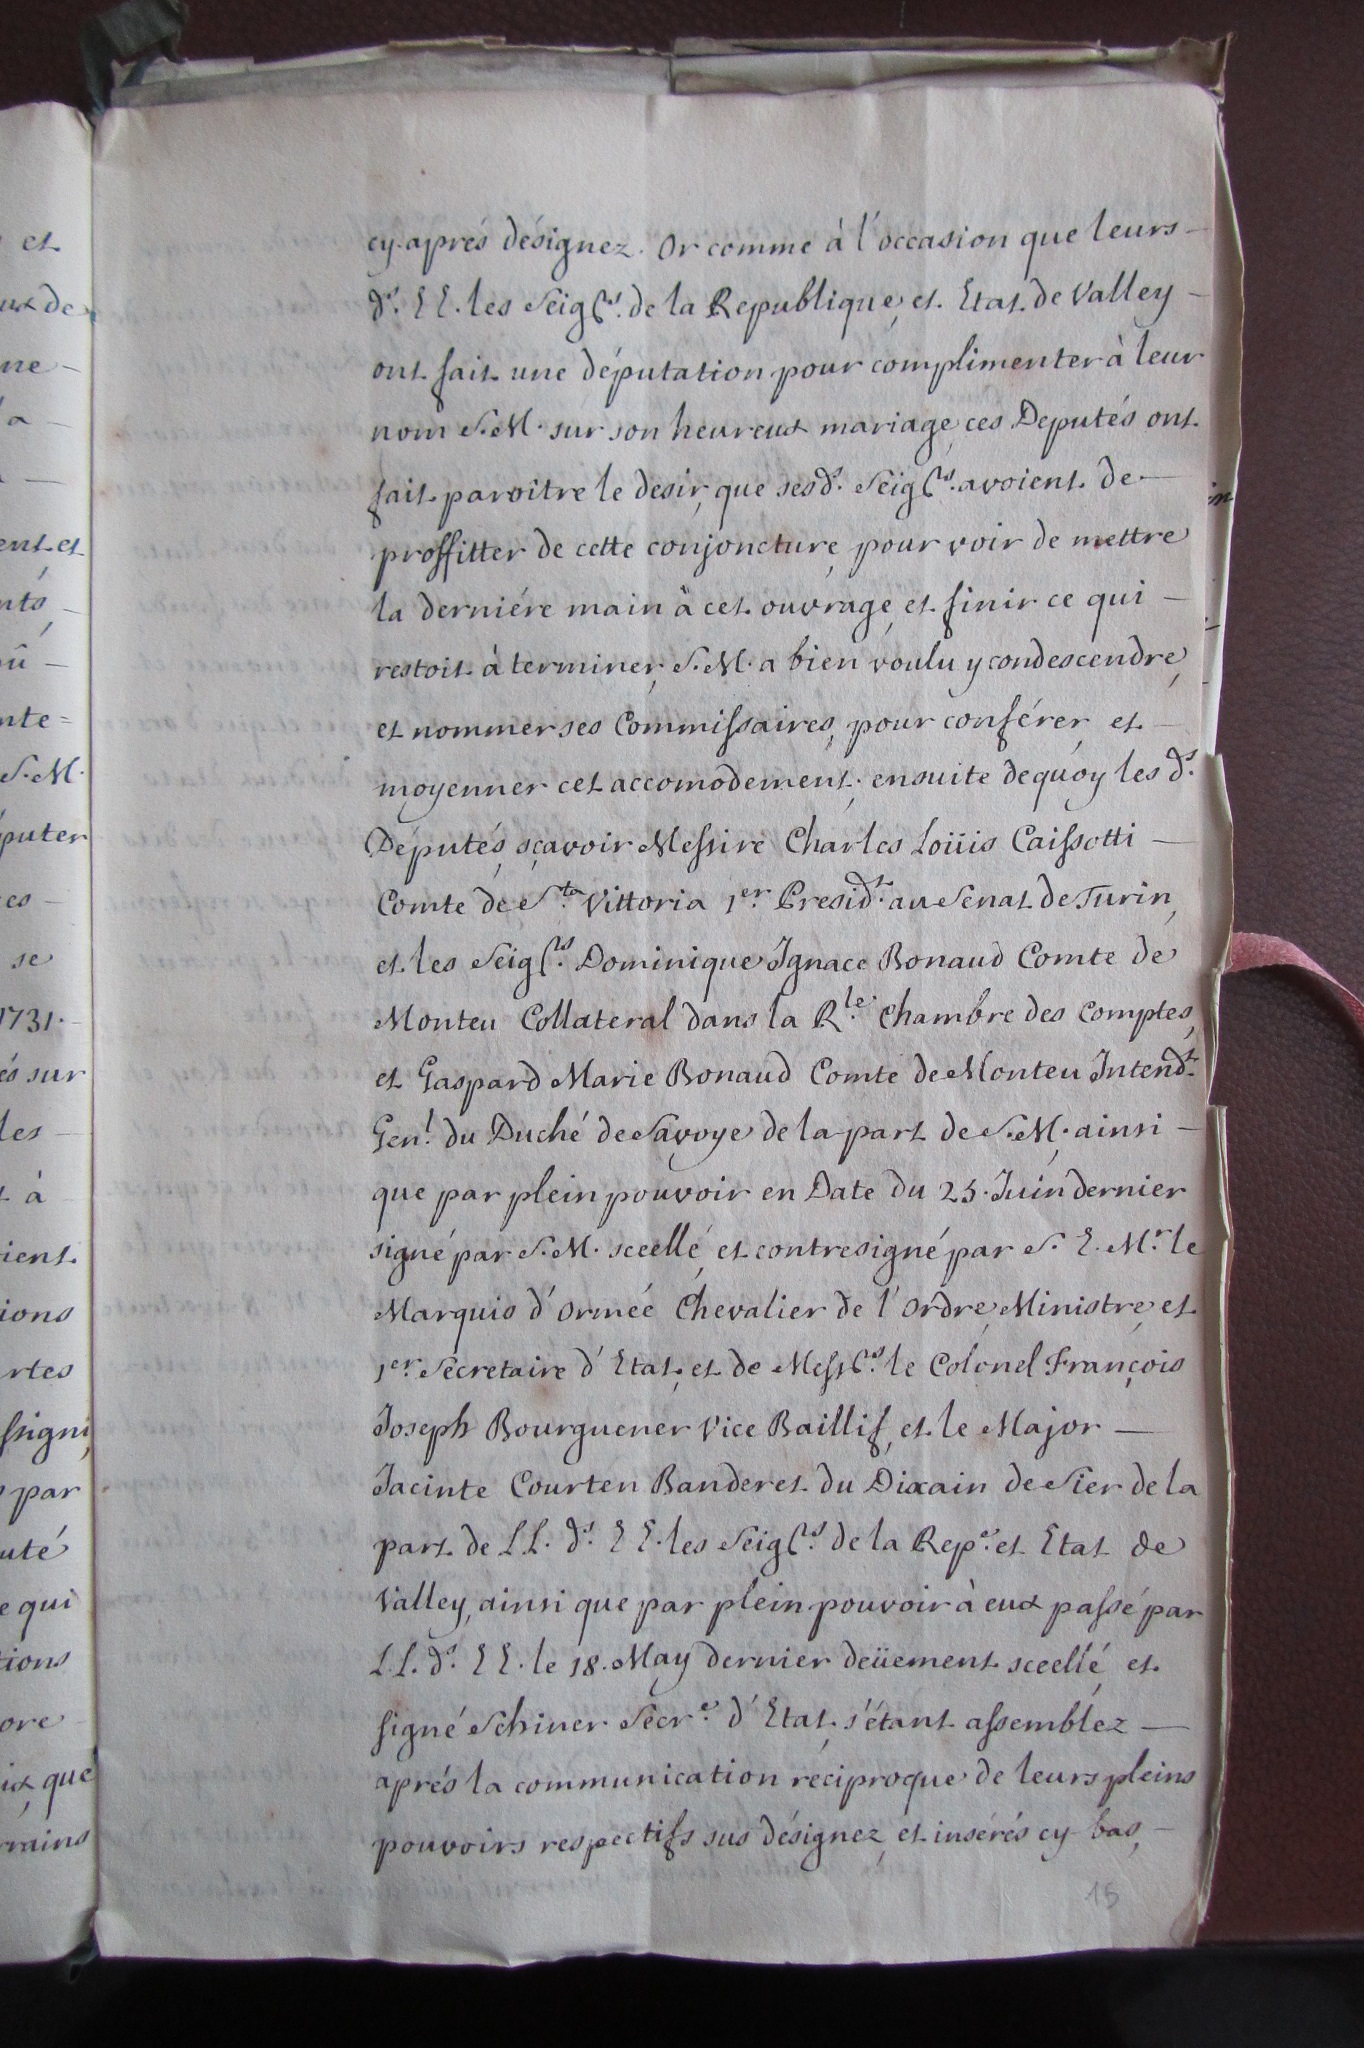 cy-aprés désignez. Or comme à l'occasion que leurs
ds. EE. les Seigrs. de la Republique, et Etat de Valley
ont fait une députation pour complimenter à leur
nom S.M. sur son heureux mariage, ces Deputés ont
fait paroitre le desir, que sesds. Seigrs. avoient de
proffitter de cette conjoncture, pour voir de mettre
la derniére main à cet ouvrage, et finir ce qui
restoit à terminer, S.M. a bien voulu y condescendre,
et nommer ses Commissaires, pour conférer, et
moyenner cet accomodement; ensuite dequoy les ds.
Députés, sçavoir Messire Charles Loüis Caissotti
Comte de Sta. Vittoria 1er. Presidt. au Senat de Turin,
et les Seigrs. Dominique Ignace Bonaud Comte de
Monteu Collateral dans la Rle. Chambre des Comptes,
et Gaspard Marie Bonaud Comte de Monteu Intendt.
Genl. du Duché de Savoye de la part de S.M. ainsi
que par plein pouvoir en Date du 25. Juin dernier
signé par S.M. sceellé, et contresigné par S. E. Mr. le
Marquis d'Ormée Chevalier de l'Ordre, Ministre, et
1er. Secretaire d'Etat, et de Messrs. le Colonel François
Joseph Bourguener Vice Baillif, et le Major
Jacinte Courten Banderet du Dixain de Sier de la
part de LL. ds. EE. les Seigrs. de la Repe. et Etat de
Valley, ainsi que par plein pouvoir à eux passé par
LL. ds. EE. le 18. May dernier deüement sceellé, et
signé Schiner Secre. d'Etat, s'étant assemblez
aprés la communication réciproque de leurs pleins
pouvoirs respectifs sus désignez, et insérés cy bas,
15
et
ux de
ne
a
ent et
nts
û
nte=
S.M.
puter
es
se
1731.
és sur
les
à
ient
ions
rtes
ssigni
par
uté
e qui
tions
ore
ix que
rrains